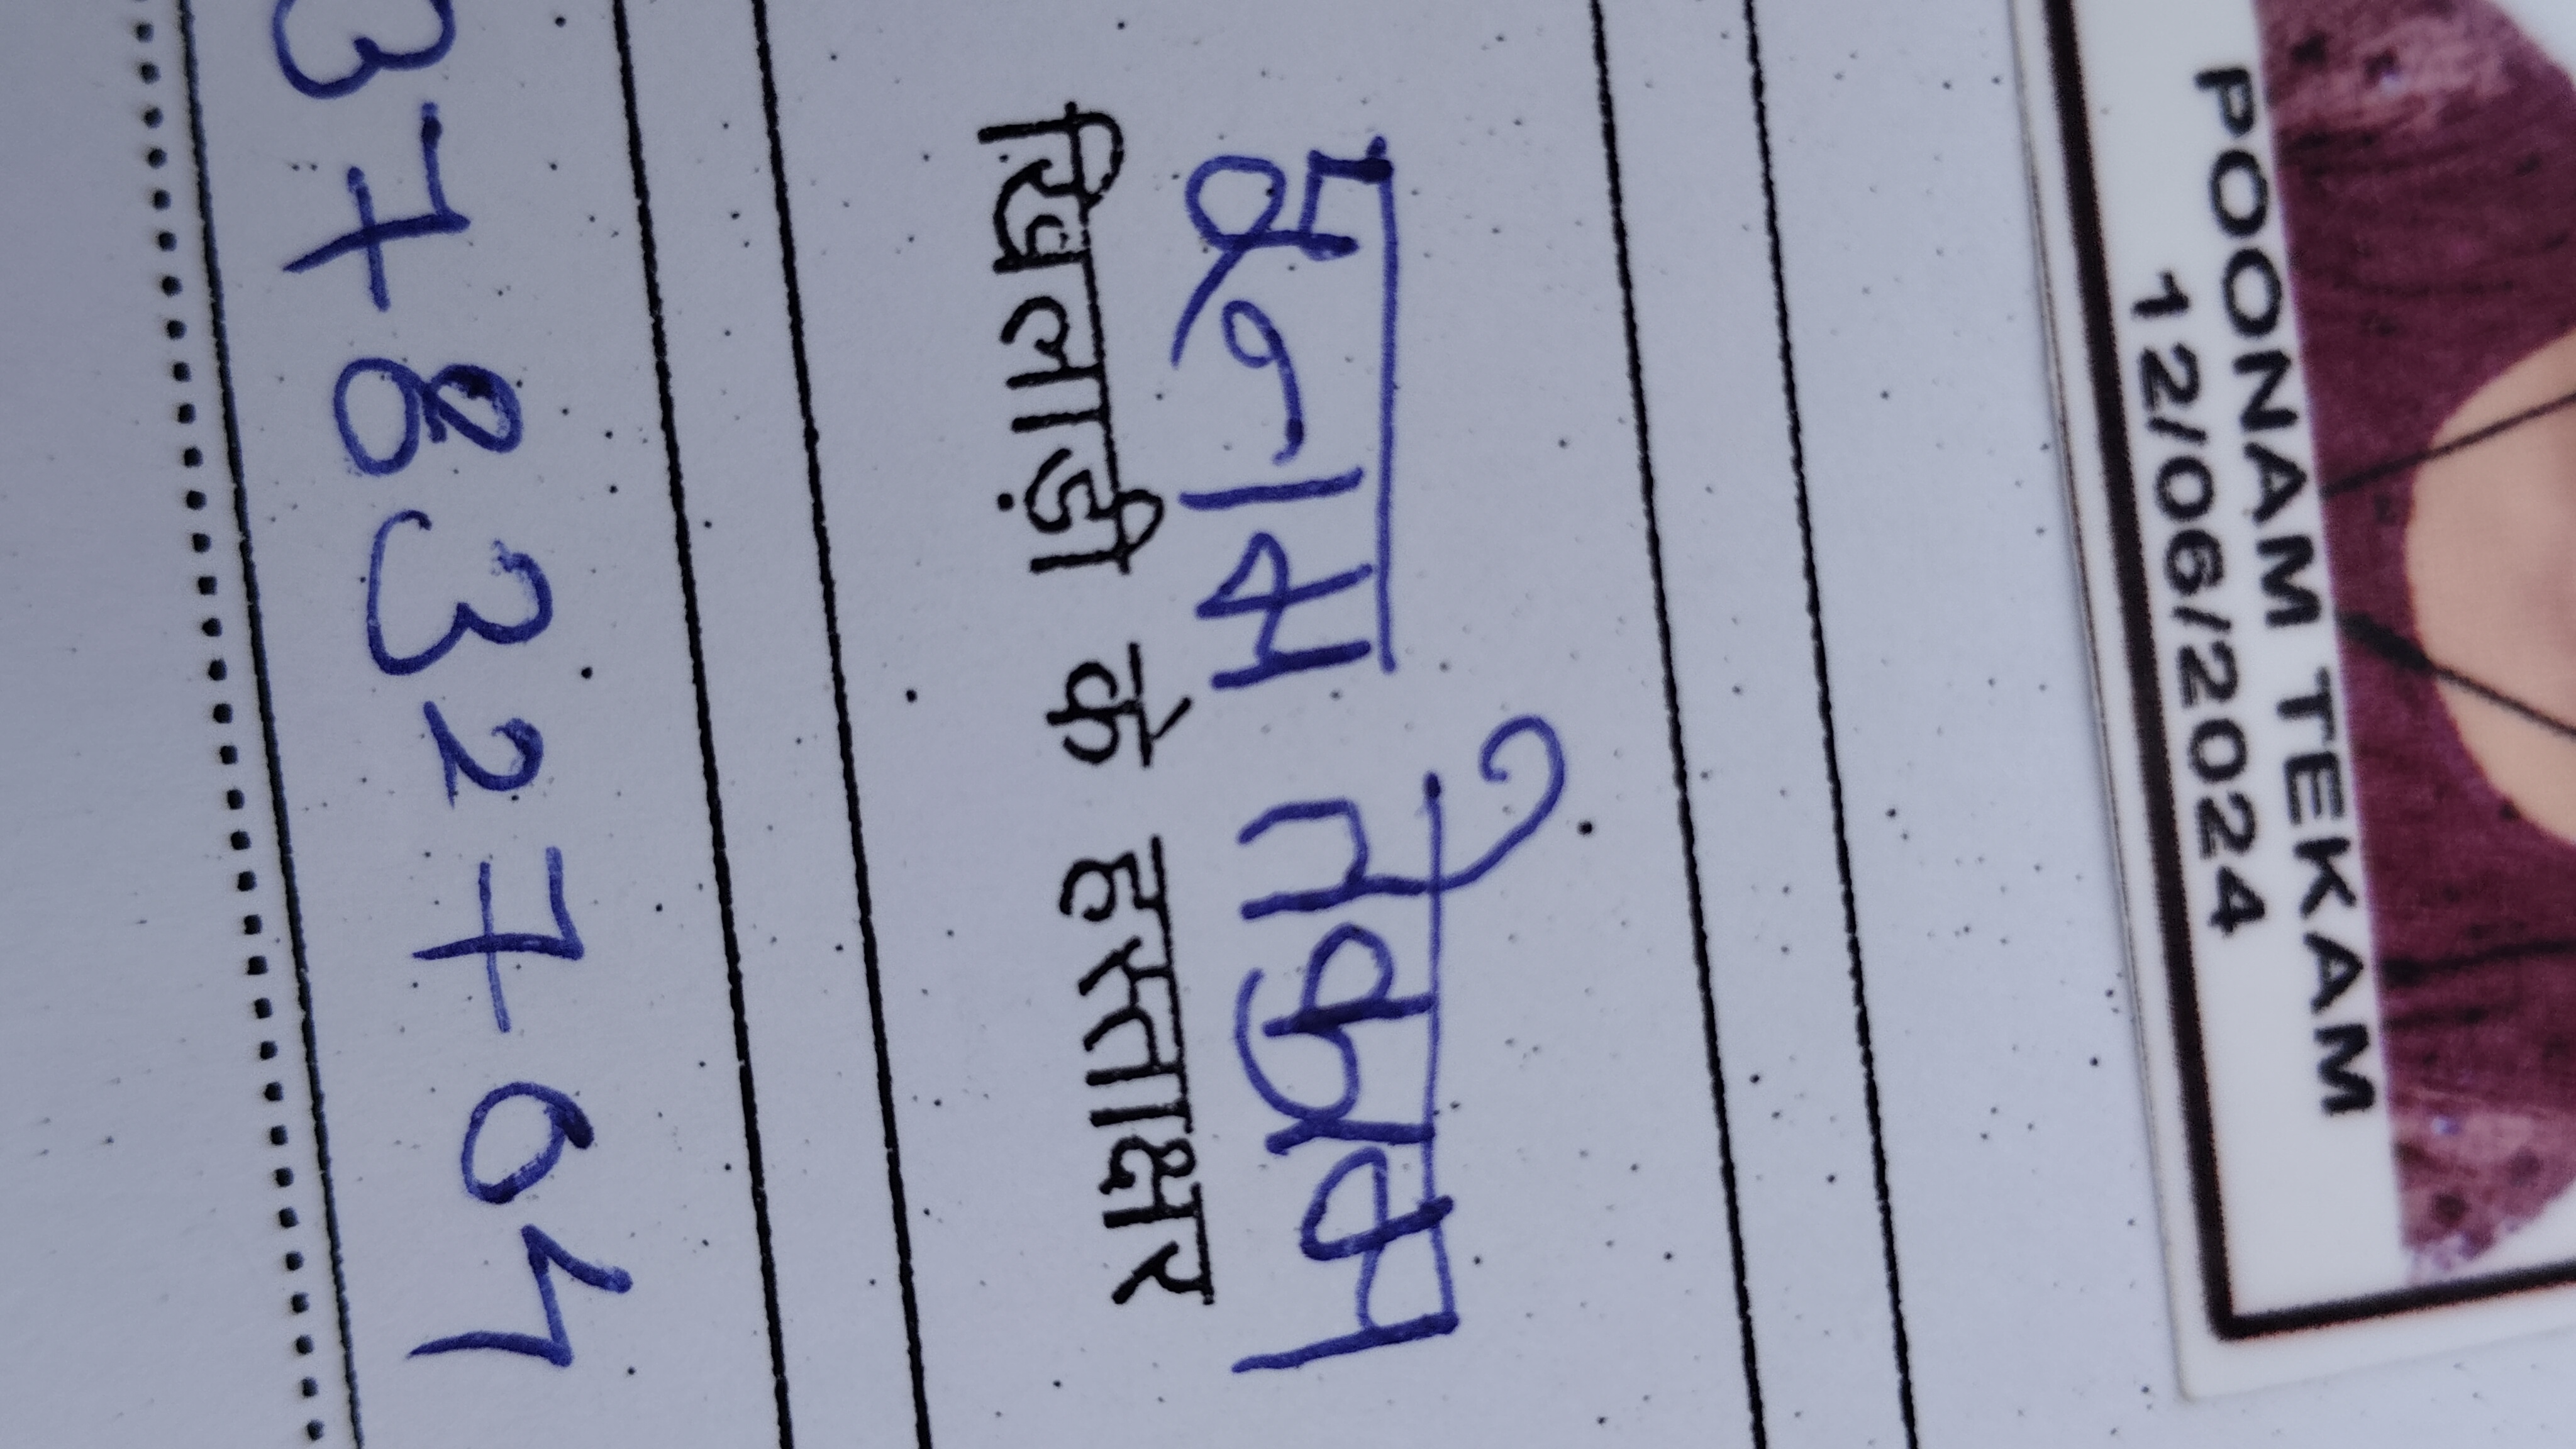 POONAM TEKAM
12/06/2024
पुनाम तेकाम
खिलाड़ी के हस्ताक्षर
37832764